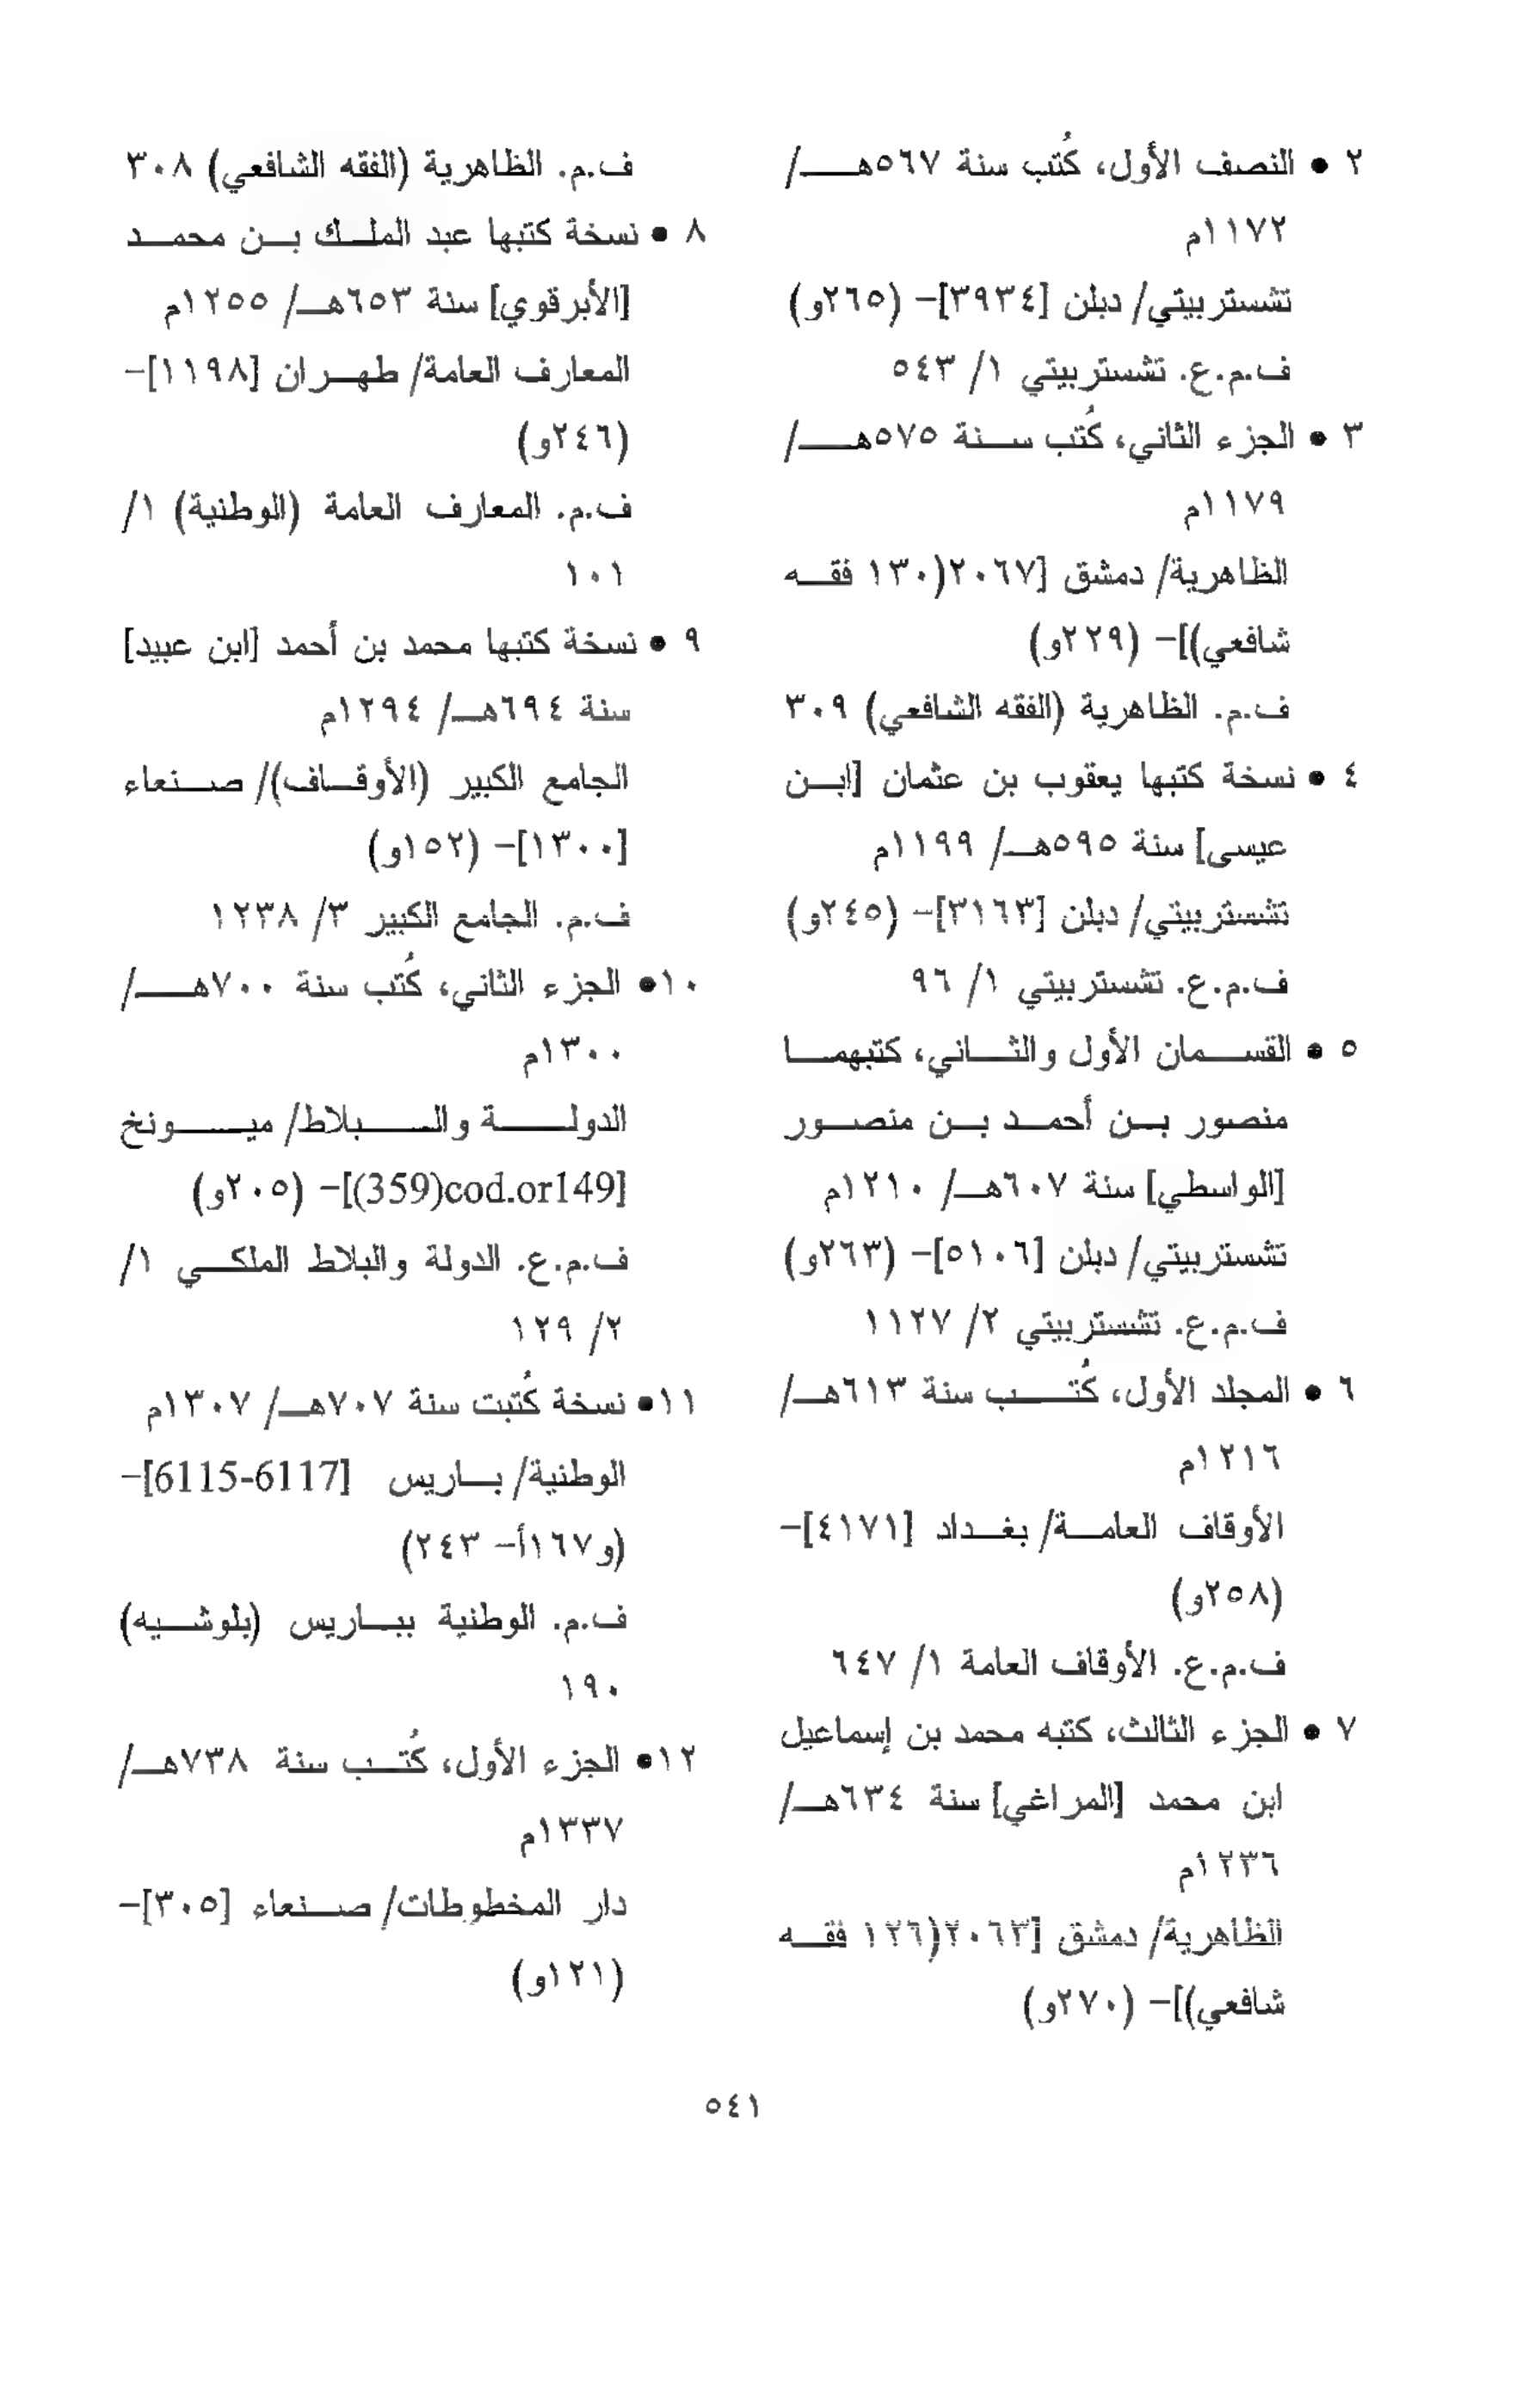 ٢ • النصف الأول، كُتب سنة ٥٦٧هـ/
١١٧٢م
تشستربيتي/ دبلن [٣٩٣٤]- (٢٦٥و)
ف.م.ع. تشستربيتي ١/ ٥٤٣
٣ • الجزء الثاني، كُتب سنة ٥٧٥هـ/
١١٧٩م
الظاهرية/ دمشق [٢٠٦٧(١٣٠ فقه
شافعي)]- (٢٢٩و)
ف.م. الظاهرية (الفقه الشافعي) ٣٠٩
٤ • نسخة كتبها يعقوب بن عثمان [ابن
عيسى] سنة ٥٩٥هـ/ ١١٩٩م
تشستربيتي/ دبلن [٣١٦٣]- (٢٤٥و)
ف.م.ع. تشستربيتي ١/ ٩٦
٥ • القسمان الأول والثاني، كتبهما
منصور بن أحمد بن منصور
[الواسطي] سنة ٦٠٧هـ/ ١٢١٠م
تشستربيتي/ دبلن [٥١٠٦]- (٢٦٣و)
ف.م.ع. تشستربيتي ٢/ ١١٢٧
٦ • المجلد الأول، كُتب سنة ٦١٣هـ/
١٢١٦م
الأوقاف العامة/ بغداد [٤١٧١]-
(٢٥٨و)
ف.م.ع. الأوقاف العامة ١/ ٦٤٧
٧ • الجزء الثالث، كتبه محمد بن إسماعيل
ابن محمد [المراغي] سنة ٦٣٤هـ/
١٢٣٦م
الظاهرية/ دمشق [٢٠٦٣(١٢٦ فقه
شافعي)]- (٢٧٠و)
ف.م. الظاهرية (الفقه الشافعي) ٣٠٨
٨ • نسخة كتبها عبد الملك بن محمد
[الأبرقوي] سنة ٦٥٣هـ/ ١٢٥٥م
المعارف العامة/ طهران [١١٩٨]-
(٢٤٦و)
ف.م. المعارف العامة (الوطنية) ١/
١٠١
٩ • نسخة كتبها محمد بن أحمد [ابن عبيد]
سنة ٦٩٤هـ/ ١٢٩٤م
الجامع الكبير (الأوقاف)/ صنعاء
[١٣٠٠]- (١٥٢و)
ف.م. الجامع الكبير ٣/ ١٢٣٨
١٠• الجزء الثاني، كُتب سنة ٧٠٠هـ/
١٣٠٠م
الدولة والبلاط/ ميونخ
[cod.or149(359)]- (٢٠٥و)
ف.م.ع. الدولة والبلاط الملكي ١/
٢/ ١٢٩
١١• نسخة كُتبت سنة ٧٠٧هـ/ ١٣٠٧م
الوطنية/ باريس [6115-6117]-
(و١٦٧أ- ٢٤٣)
ف.م. الوطنية بباريس (بلوشيه)
١٩٠
١٢• الجزء الأول، كُتب سنة ٧٣٨هـ/
١٣٣٧م
دار المخطوطات/ صنعاء [٣٠٥]-
(١٢١و)
٥٤١